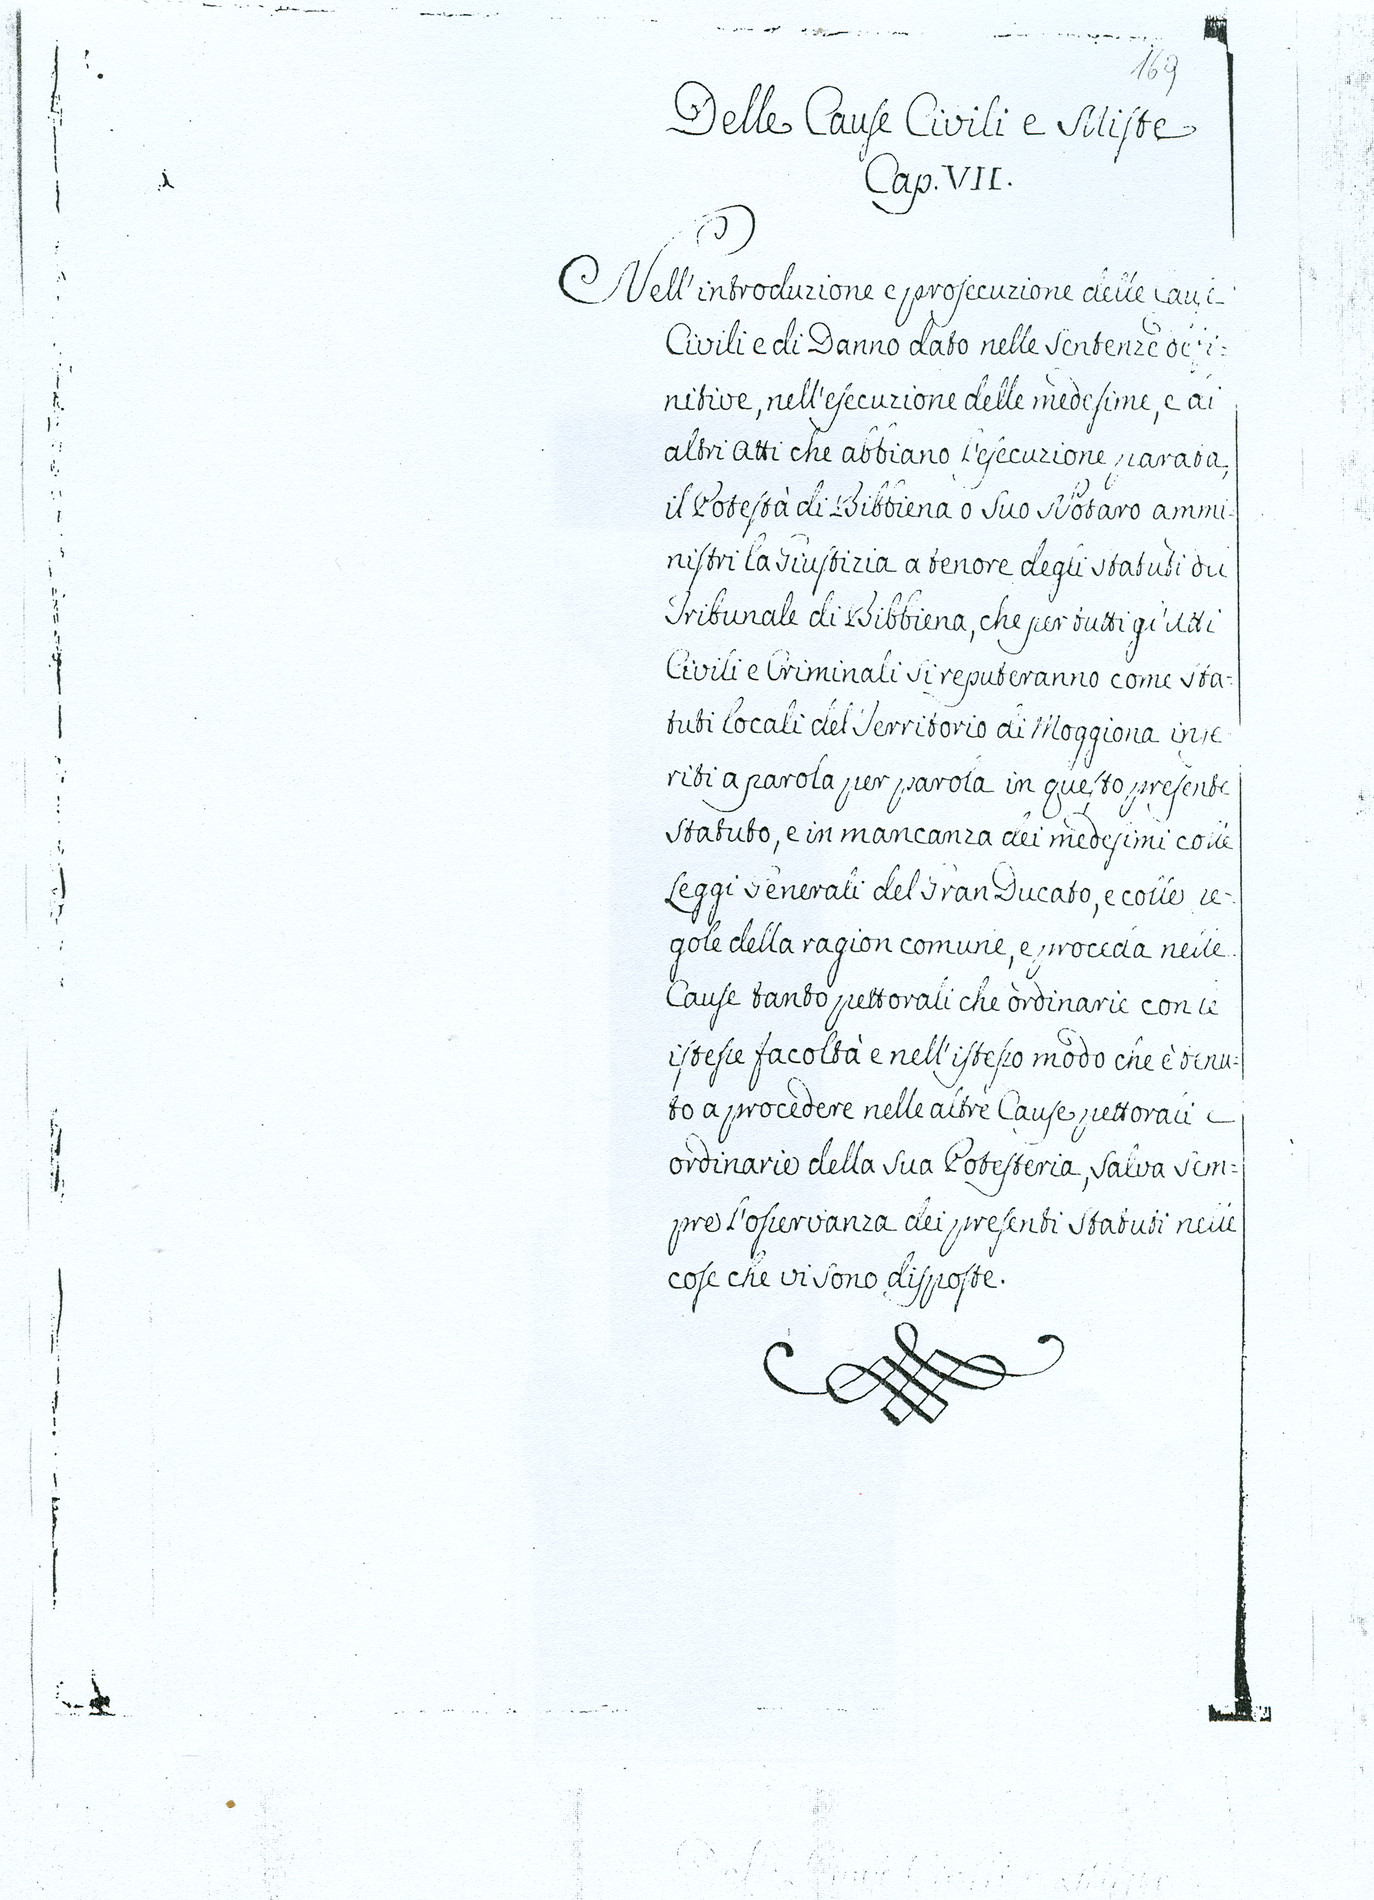 169
Delle Cause Civili e Miste
Cap. VII.
Nell'introduzione e prosecuzione delle Cause
Civili e di Danno dato nelle Sentenze defi=
nitive, nell'esecuzione delle medesime, e di
altri Atti che abbiano l'esecuzione parata,
il Potestà di Bibbiena o Suo Notaro ammi=
nistri la Giustizia a tenore degli Statuti del
Tribunale di Bibbiena, che per tutti gl'Atti
Civili e Criminali si reputeranno come Sta=
tuti locali del Territorio di Moggiona inse=
riti a parola per parola in questo presente
Statuto, e in mancanza dei medesimi colle
Leggi Generali del Gran Ducato, e colle re=
gole della ragion comune, e proceda nelle
Cause tanto pettorali che ordinarie con le
istesse facoltà e nell'istesso modo che è tenu=
to a procedere nelle altre Cause pettorali e
ordinarie della Sua Potesteria, Salva Sem=
pre l'osservanza dei presenti Statuti nelle
cose che vi sono disposte.